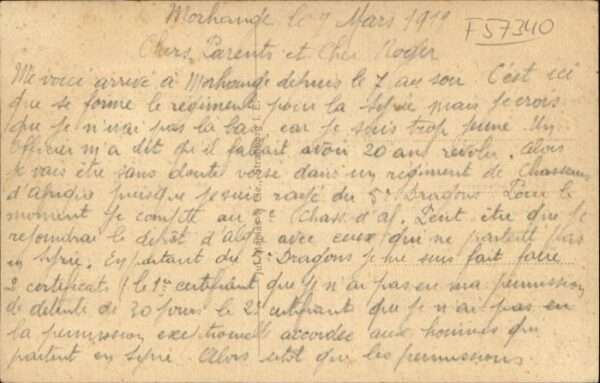 Morhange le 7 Mars 1919
F57340
Chers Parents et Cher Roger
Me voici arrivé à Morhange depuis le 7 au soir. C'est ici
que se forme le régiment pour la Syrie mais je crois
que je n'irai pas là bas car je suis trop jeune. Un
officier m'a dit qu'il fallait avoir 20 ans révolu. Alors
je vais être sans doute versé dans un régiment de Chasseurs
d'Afrique puisque je suis rayé du 5e Dragons Pour le
moment je compte au Chass. d'Af. Peut être que je
rejoindrai le dépôt d'Alger avec ceux qui ne partent pas
en Syrie. En partant du Dragons je me suis fait faire
2 certificats : le 1er certifiant que je n'ai pas eu ma permission
de détente de 20 jours le 2e certifiant que je n'ai pas eu
la permission exceptionnelle accordée aux hommes qui
partent en Syrie Alors sitôt que les permissions